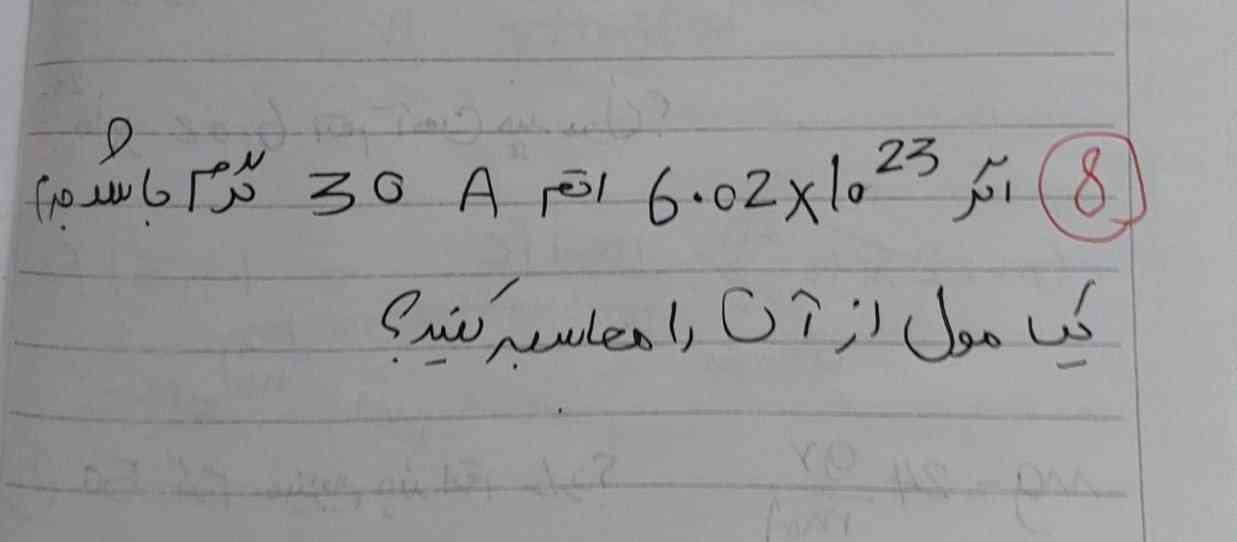 8 اگر 6.02x10²³ اتم A 30 گرم باشد جرم
یک مول از آن را محاسبه کنید؟